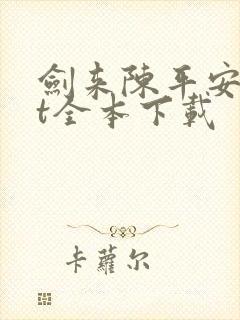 劍来陳平安
t全本下載
卡蘿尔